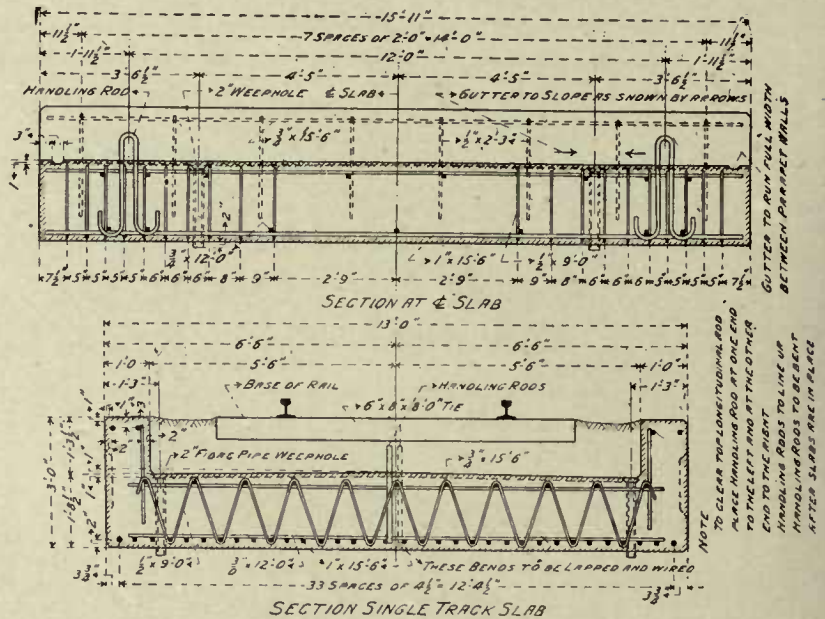 15'-11"
11½" 7 SPACES OF 2'-0"=14'-0" 11½"
1'-11½" 12'-0" 1'-11½"
3'-6½" 4'-5" 4'-5" 3'-6½"
HANDLING ROD 2" WEEPHOLE ℄ SLAB GUTTER TO SLOPE AS SHOWN BY ARROWS
3" ¾" x 15'-6" ½" x 2'-3"
1"
2"
¾" x 12'-0" 1" x 15'-6" ½" x 9'-0"
7½" 5" 5" 5" 5" 6" 6" 6" 8" 9" 2'-9" 2'-9" 9" 8" 6" 6" 6" 5" 5" 5" 5" 7½"
SECTION AT ℄ SLAB
GUTTER TO RUN FULL WIDTH
BETWEEN PARAPET WALLS
13'-0"
6'-6" 6'-6"
1'-0 5'-6" 5'-6" 1'-0"
1'-3" 1'-3"
BASE OF RAIL HANDLING RODS
6" x 8" x 8'-0" TIE
1" 3"
2" 2"
2" FIBRE PIPE WEEPHOLE ¾" x 15'-6"
3'-0"
1" 1'-3½" 1" 1'-8½" 2"
½" x 9'-0" ¾" x 12'-0" 1" x 15'-6" THESE BENDS TO BE LAPPED AND WIRED
3¾" 33 SPACES OF 4½" = 12'-4½" 3¾"
SECTION SINGLE TRACK SLAB
NOTE
TO CLEAR TOP LONGITUDINAL ROD
PLACE HANDLING ROD AT ONE END
TO THE LEFT AND AT THE OTHER
END TO THE RIGHT
HANDLING RODS TO LINE UP
HANDLING RODS TO BE BENT
AFTER SLABS ARE IN PLACE